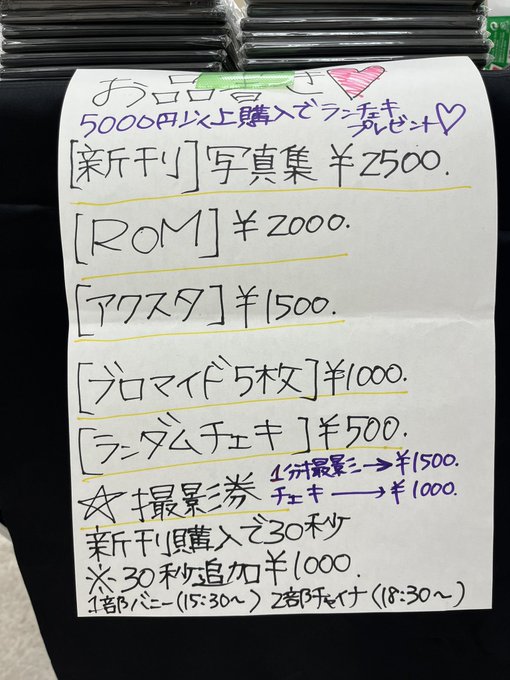 お品書き
5000円以上購入でランチェキ
プレゼント
[新刊]写真集 ¥2500.
[ROM] ¥2000.
[アクスタ]¥1500.
[ブロマイド5枚]¥1000.
[ランダムチェキ]¥500.
☆撮影券 1分撮影→¥1500.
チェキ→¥1000.
新刊購入で30秒
※30秒追加¥1000.
1部バニー(15:30〜) 2部チャイナ(18:30〜)